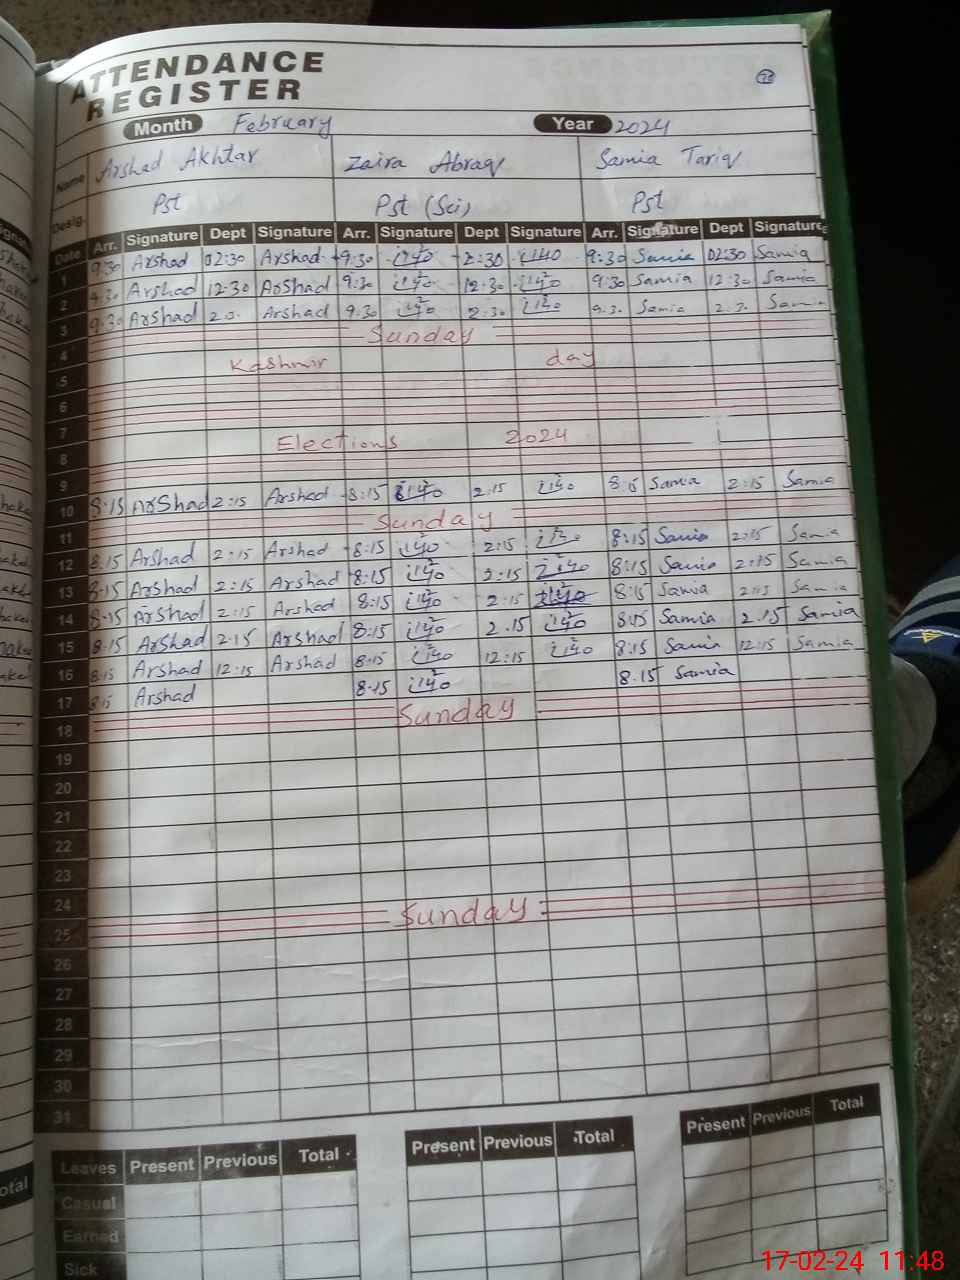 ATTENDANCE
REGISTER
Month February Year 2024
Name Arshad Akhtar Zaira Abraq Samia Tariq
Desig. Pst Pst (Sci) Pst
Date Arr. Signature Dept Signature Arr. Signature Dept Signature Arr. Signature Dept Signature
1 9:30 Arshad 02:30 Arshad 9:30 2:30 9:30 Samia 02:30 Samia
2 9.30 Arshad 12.30 Arshad 9:30 12.30 9:30 Samia 12:30 Samia
3 9.30 Arshad Arshad 9.30 2:30 Samia Samia
4 Sunday
5 Kashmir day
6
7
8 Elections 2024
9
10 8:15 Arshad 2:15 Arshad 8:15 2:15 Samia 2:15 Samia
11 Sunday
12 8.15 Arshad 2:15 Arshad 8:15 2:15 8:15 Samia 2:15 Samia
13 8.15 Arshad 2:15 Arshad 8:15 2:15 8:15 Samia 2:15 Samia
14 8.15 Arshad 2:15 Arshad 8:15 2:15 8:15 Samia 2:15 Samia
15 8.15 Arshad 2:15 Arshad 8:15 2.15 8:15 Samia 2.15 Samia
16 8:15 Arshad 12:15 Arshad 8:15 12:15 8:15 Samia 12:15 Samia
17 8:15 Arshad 8.15 8.15 Samia
18 Sunday
19
20
21
22
23
24
25 Sunday
26
27
28
29
30
31
Leaves Present Previous Total Present Previous Total Present Previous Total
Casual
Earned
Sick
17-02-24 11:48